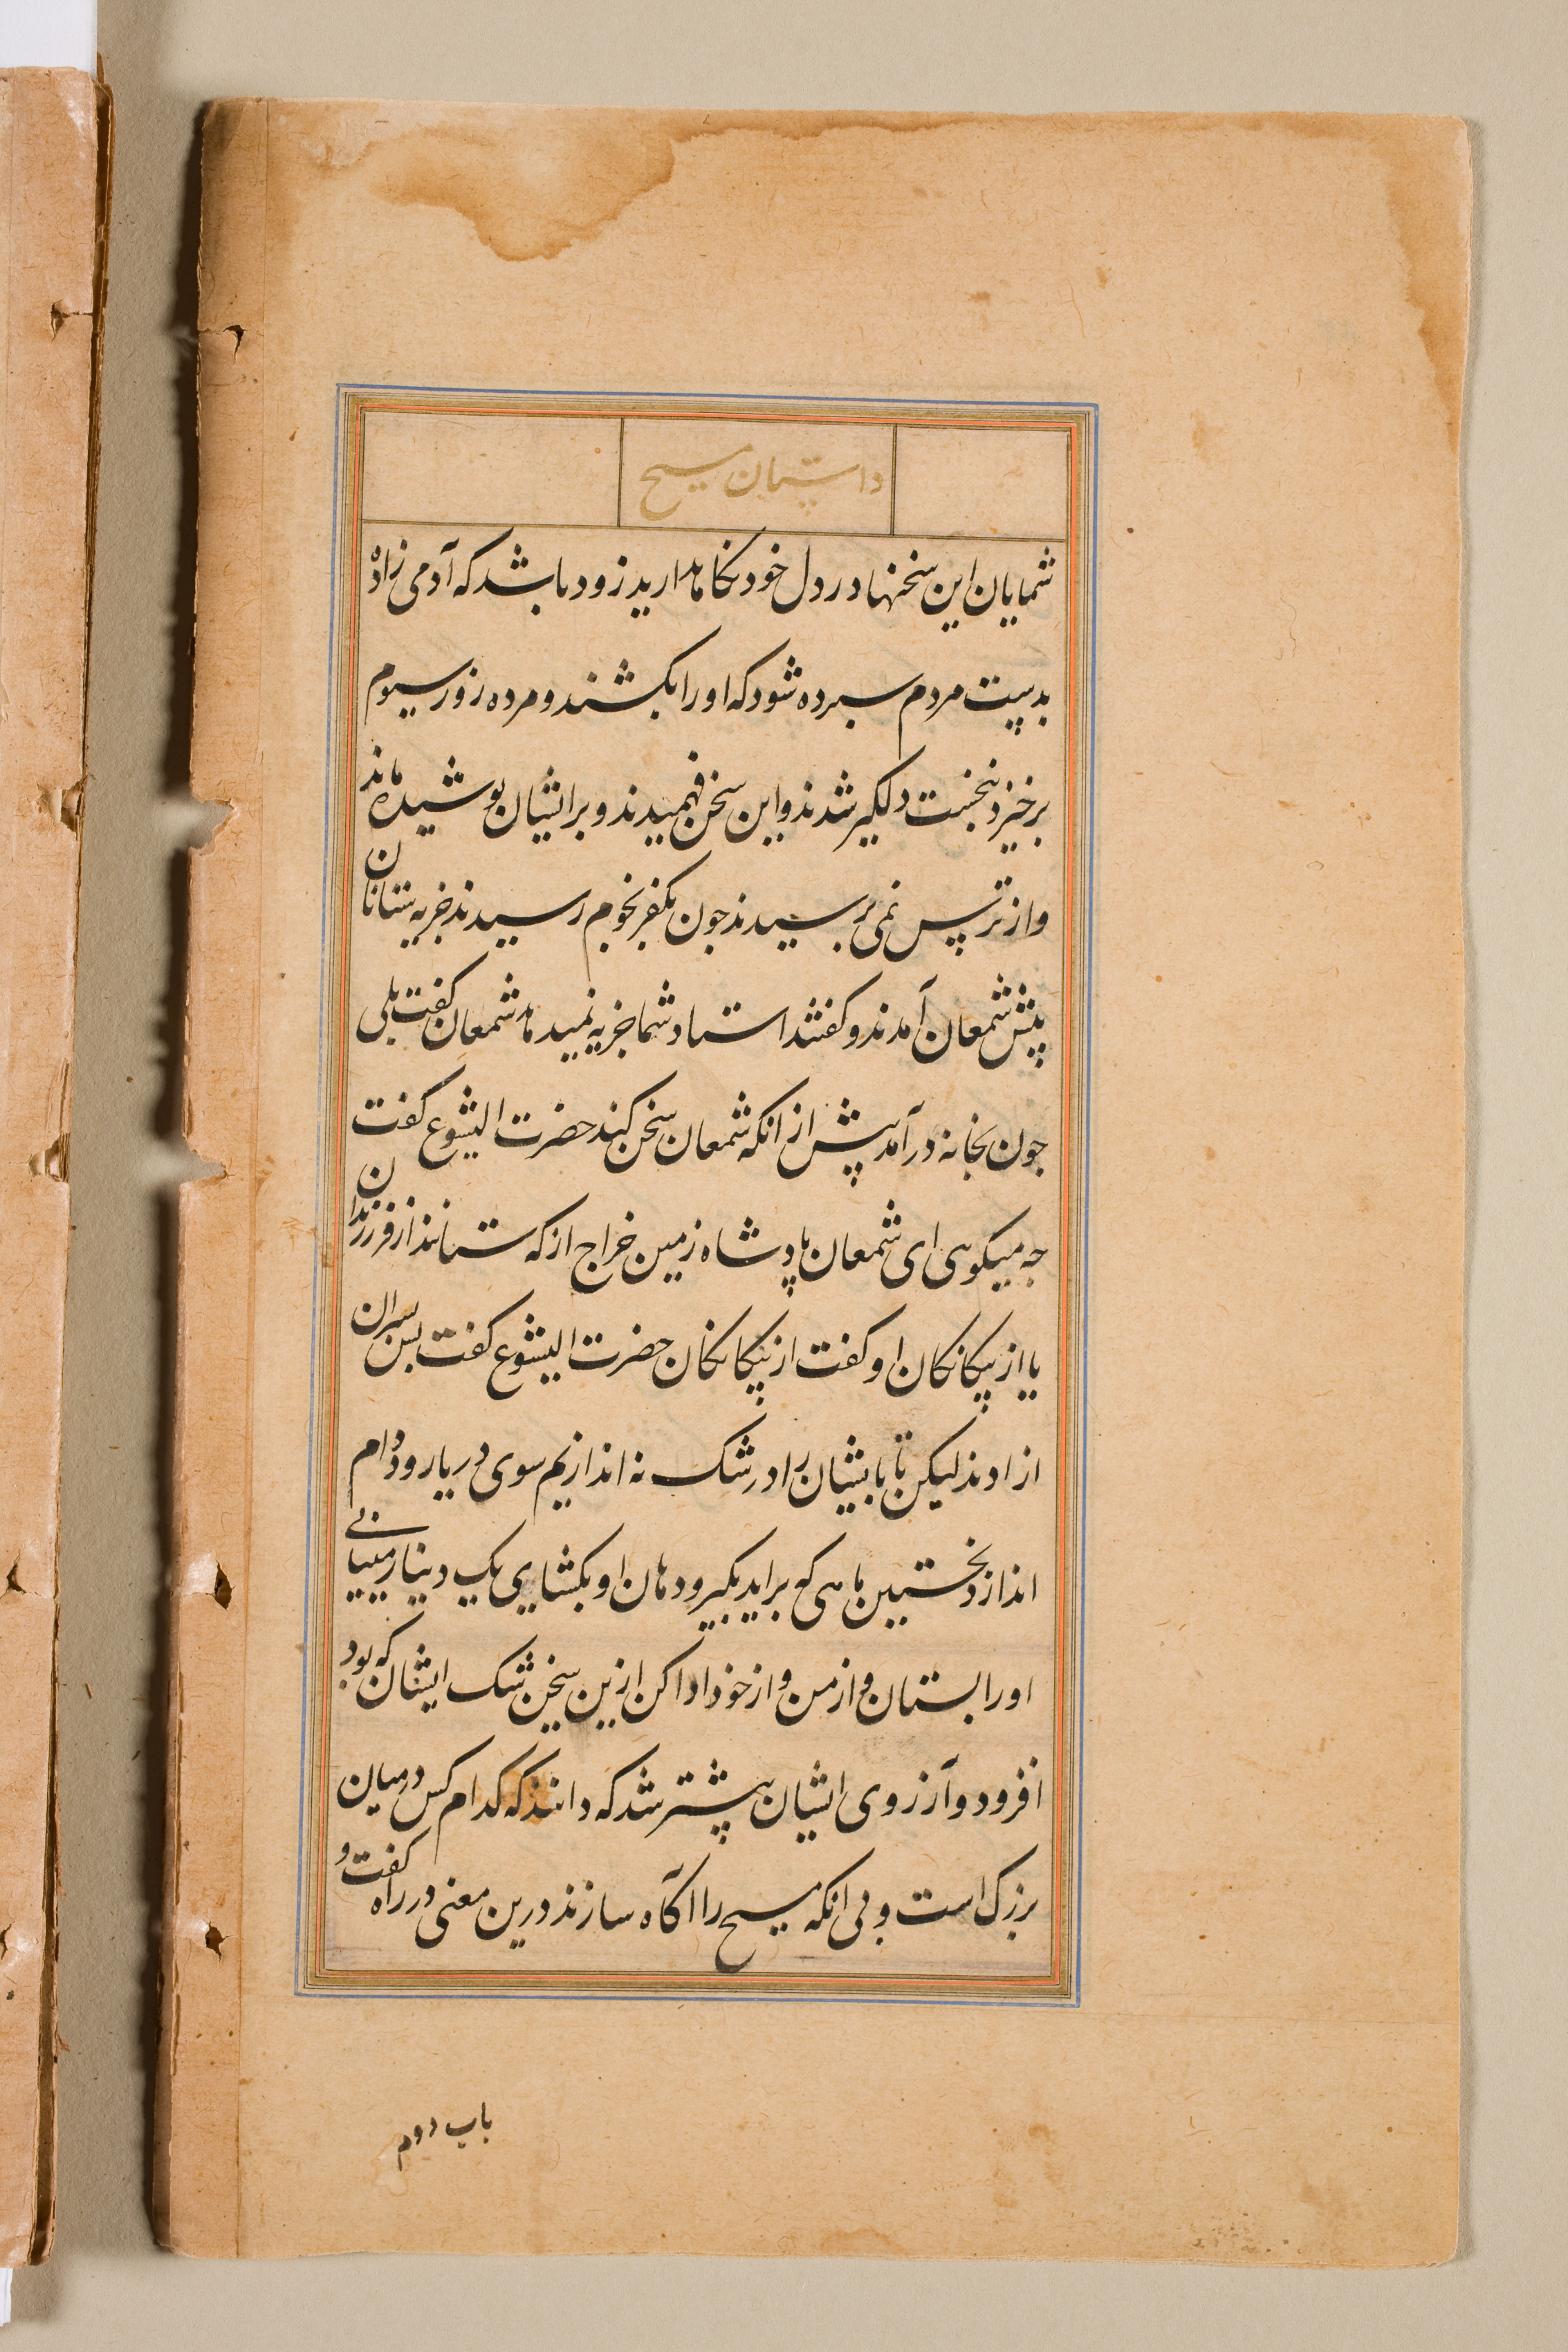 داستان مسیح
شمایان این سخنها در دل خود نکاه دارید زود باشد که آدمی زاده
بدست مردم سبرده شود که اورا بکشند و مرده روز سیوم
برخیزد نخست دلکیر شدند و این سخن نفهمیدند و بر ایشان بوشیده ماند
و از ترس نمی برسیدند جون بکفر نحوم رسیدند جزیه ستانان
پیش شمعان آمدند و کفتند استاد شما جزیه نمیدهد شمعان کفت بلی
جون بخانه در آمد پیش از انکه شمعان سخن کند حضرت ایشوع کفت
جه میکوبی ای شمعان پادشاه زمین خراج از که ستانند از فرزندان
یا از بیکانکان او کفت از بیکانکان حضرت ایشوع کفت بس بسران
ازادند لیکن تا با یشان را در شک نه اندازیم سوی دریا رود و دام
انداز نخستین ماهی که براید بکیر و دهان او بکشای یک دینار مییابی
اورا بستان و از من و از خود ادا کن ازین سخن شک ایشان که بود
افزود و آرزوی ایشان بیشتر شد که دانند که کدام کس درمیان
بزرک است و بی انکه مسیح را آکاه سازند درین معنی در راه کفت و
باب دوم